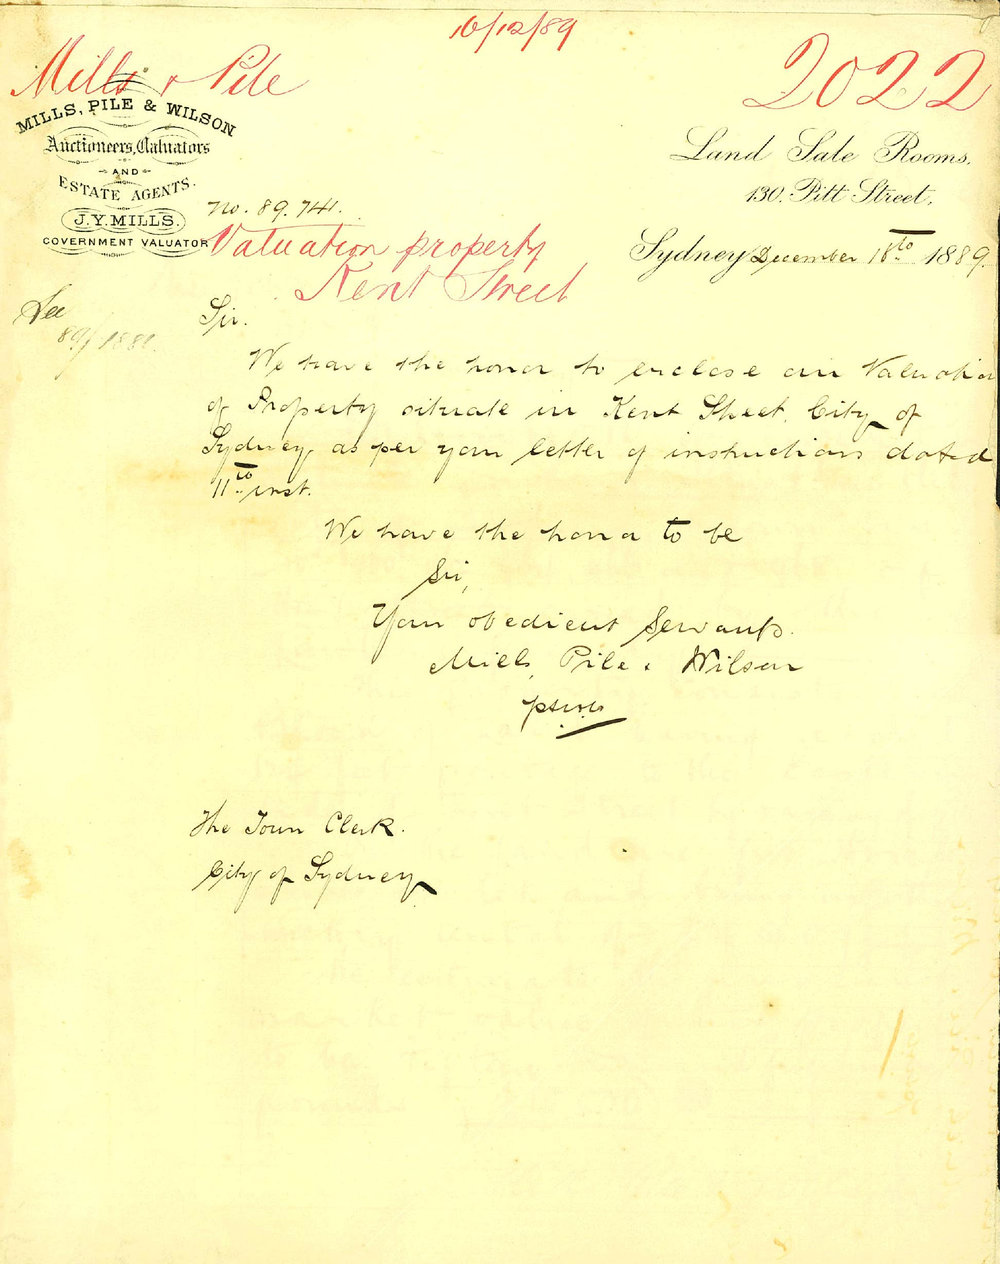 16/12/89
Mills & Pile
2022
MILLS, PILE & WILSON
Auctioneers, Valuators
AND
ESTATE AGENTS.
J.Y. MILLS.
GOVERNMENT VALUATOR
Land Sale Rooms,
130, Pitt Street,
Sydney December 18th 1889.
No. 89.741.
Valuation property
Kent Street
See
89/1881
Sir.
We have the honor to enclose our Valuation
of Property situate in Kent Street, City of
Sydney, as per your letter of instructions dated
11th inst.
We have the honor to be
Sir,
Your obedient Servants.
Mills, Pile & Wilson
The Town Clerk.
City of Sydney